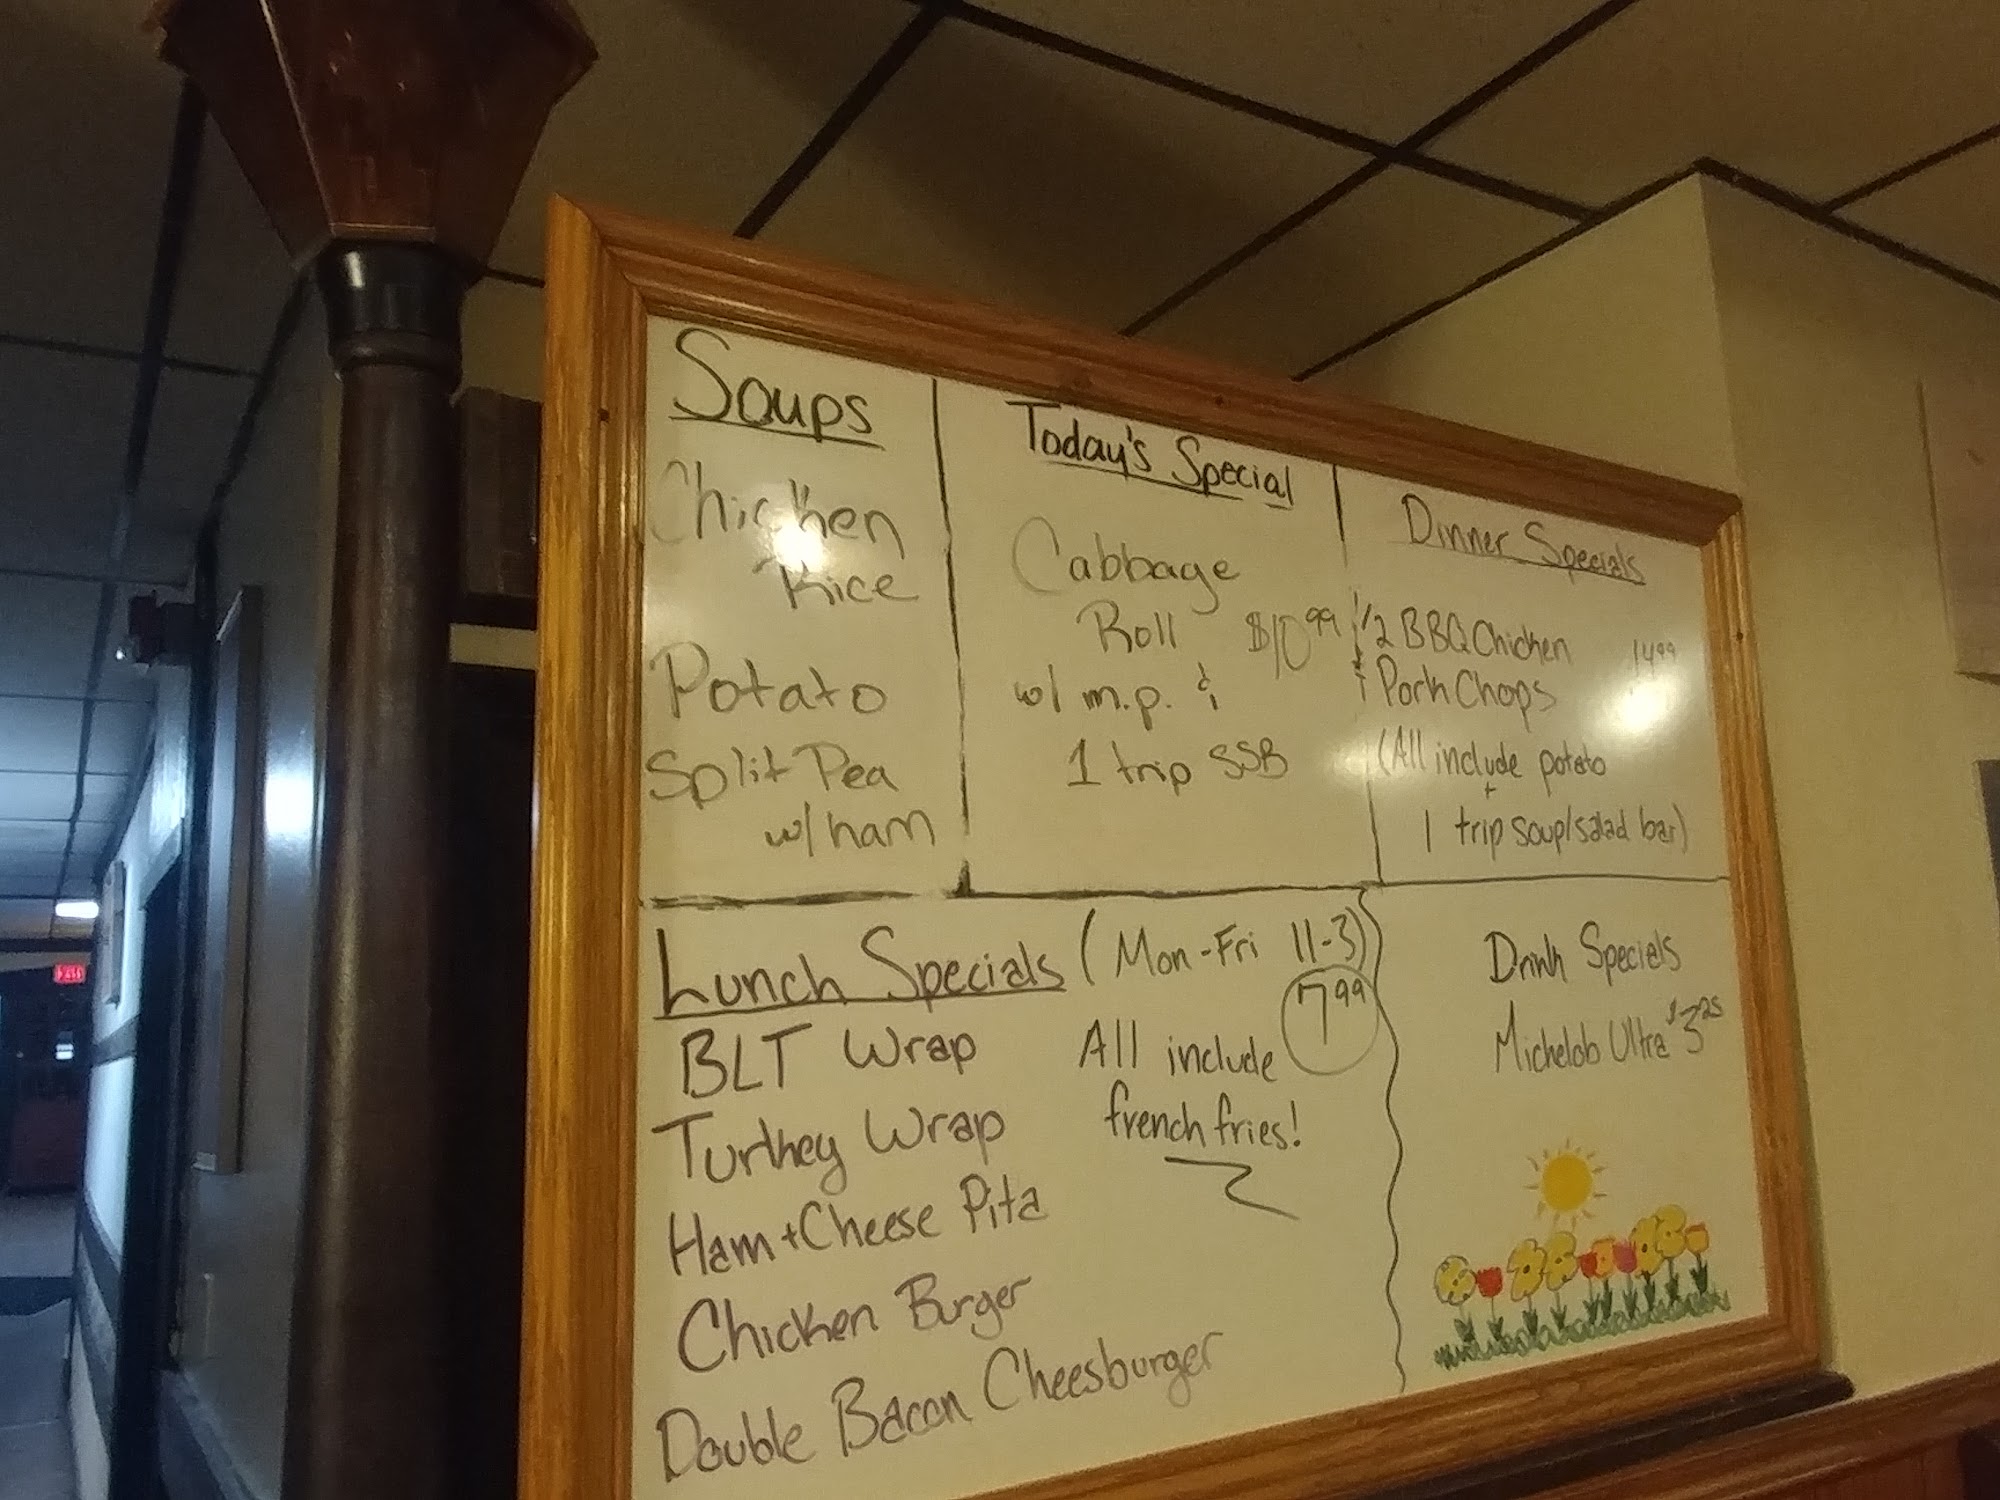 Soups
Chicken
Rice
Potato
Split Pea
w/ ham
Today's Special
Cabbage
Roll $10.99
w/ m.p. &
1 trip SSB
Dinner Specials
1/2 BBQ Chicken 14.99
+ Pork Chops
(All include potato
+
1 trip soup/salad bar)
Lunch Specials (Mon-Fri 11-3)
7.99
BLT Wrap
Turkey Wrap
Ham + Cheese Pita
Chicken Burger
Double Bacon Cheesburger
All include
french fries!
Drink Specials
Michelob Ultra $3.25